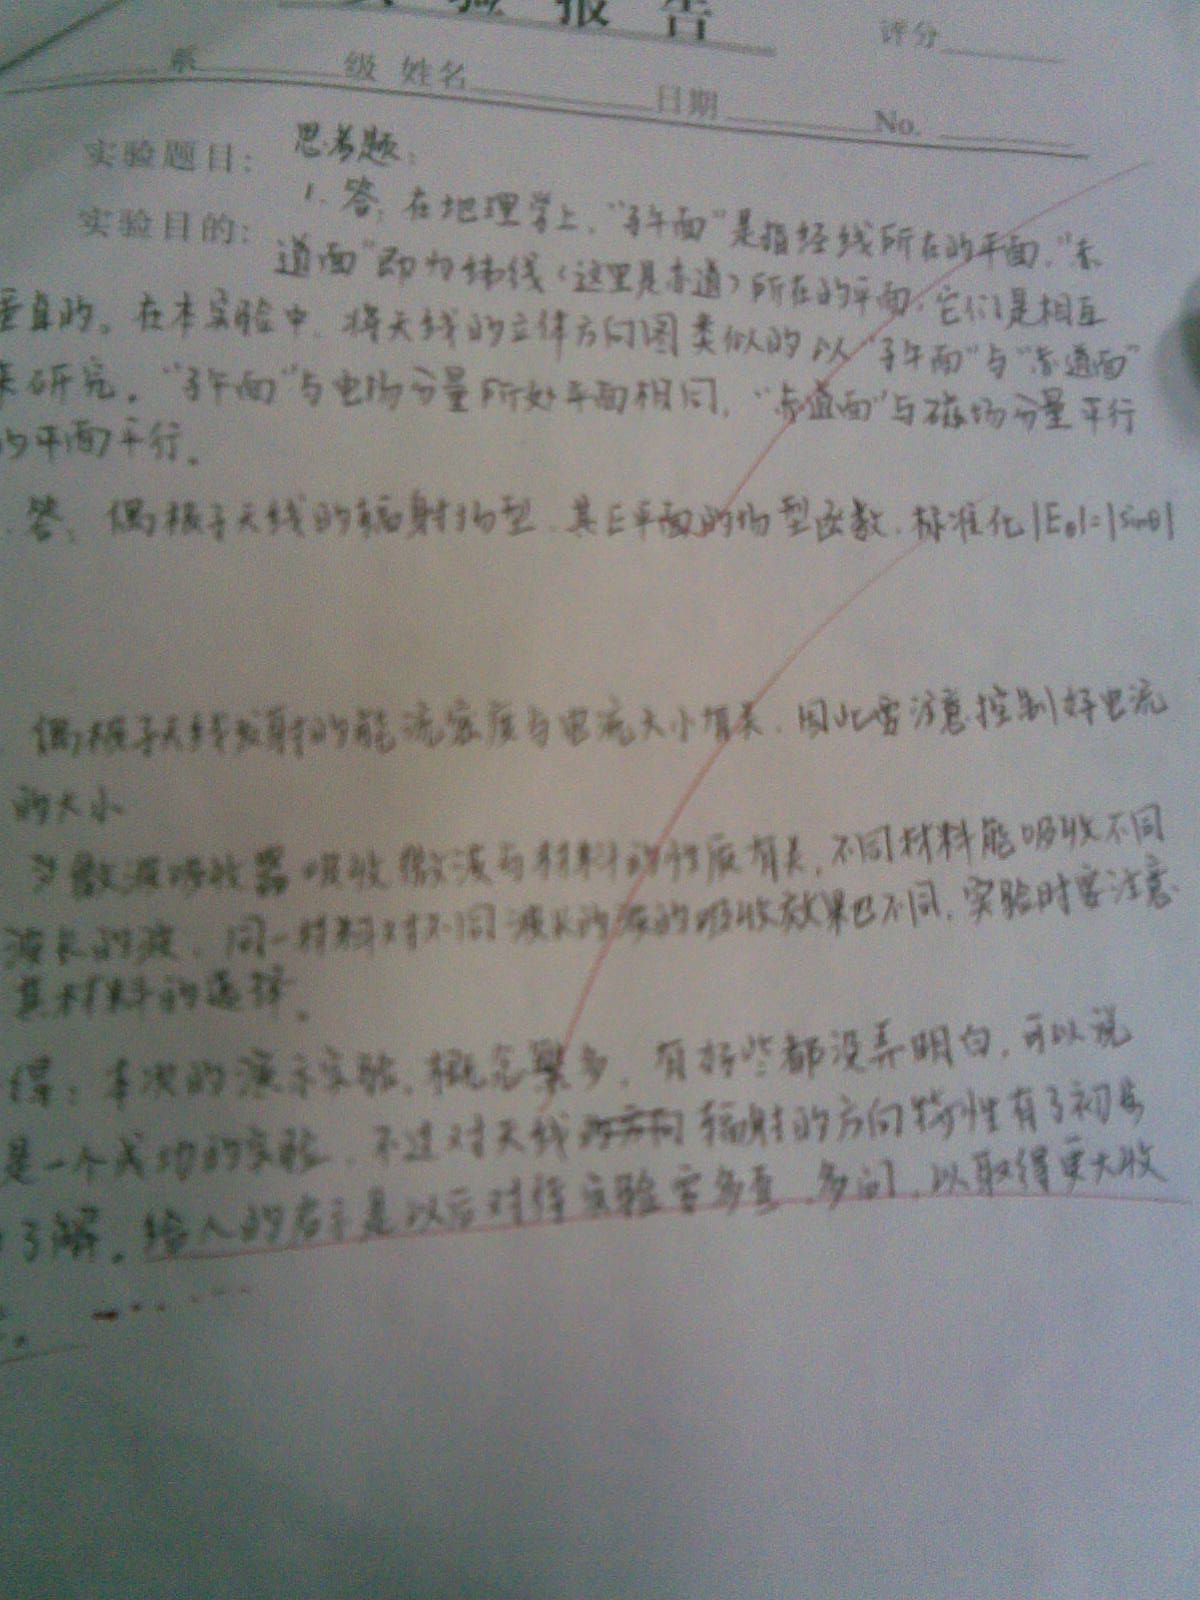 实验报告
评分
系 级 姓名 日期 No.
实验题目: 思考题:
1. 答: 在地理学上, “子午面”是指经线所在的平面, “赤
实验目的:
道面”即为纬线(这里是赤道)所在的平面, 它们是相互
垂直的。在本实验中, 将天线的立体方向图类似的以“子午面”与“赤道面”
来研究. “子午面”与电场分量所处平面相同, “赤道面”与磁场分量平行
的平面平行.
答: 偶极子天线的辐射场型, 其E平面的场型函数, 标准化|Eθ|=|sinθ|
偶极子天线发射的能流密度与电流大小有关, 因此要注意控制好电流
的大小
微波吸收器吸收微波与材料的性质有关, 不同材料能吸收不同
波长的波, 同一材料对不同波长的波的吸收效果也不同, 实验时要注意
其材料的选择.
得: 本次的演示实验, 概念繁多, 有好些都没弄明白, 可以说
是一个成功的实验, 不过对天线辐射的方向特性有了初步
了解. 给人的启示是以后对待实验要多查, 多问, 以取得更大收